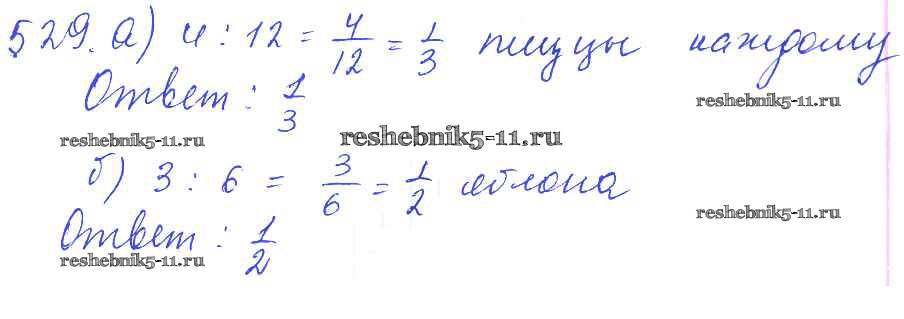 529. а) 4 : 12 = 4/12 = 1/3 пиццы каждому
Ответ : 1/3
reshebnik5-11.ru
reshebnik5-11.ru
reshebnik5-11.ru
б) 3 : 6 = 3/6 = 1/2 яблока
Ответ : 1/2
reshebnik5-11.ru
reshebnik5-11.ru